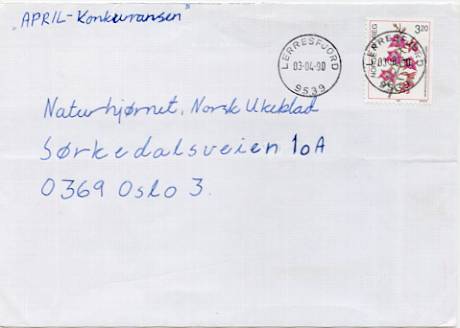 „APRIL-Konkurransen"
LERRESFJORD
03-04-90
9539
NORGE
NOREG
3,20
LERRESFJORD
03-04-90
9539
Naturhjørnet, Norsk Ukeblad
Sørkedalsveien 10A
0369 Oslo 3.